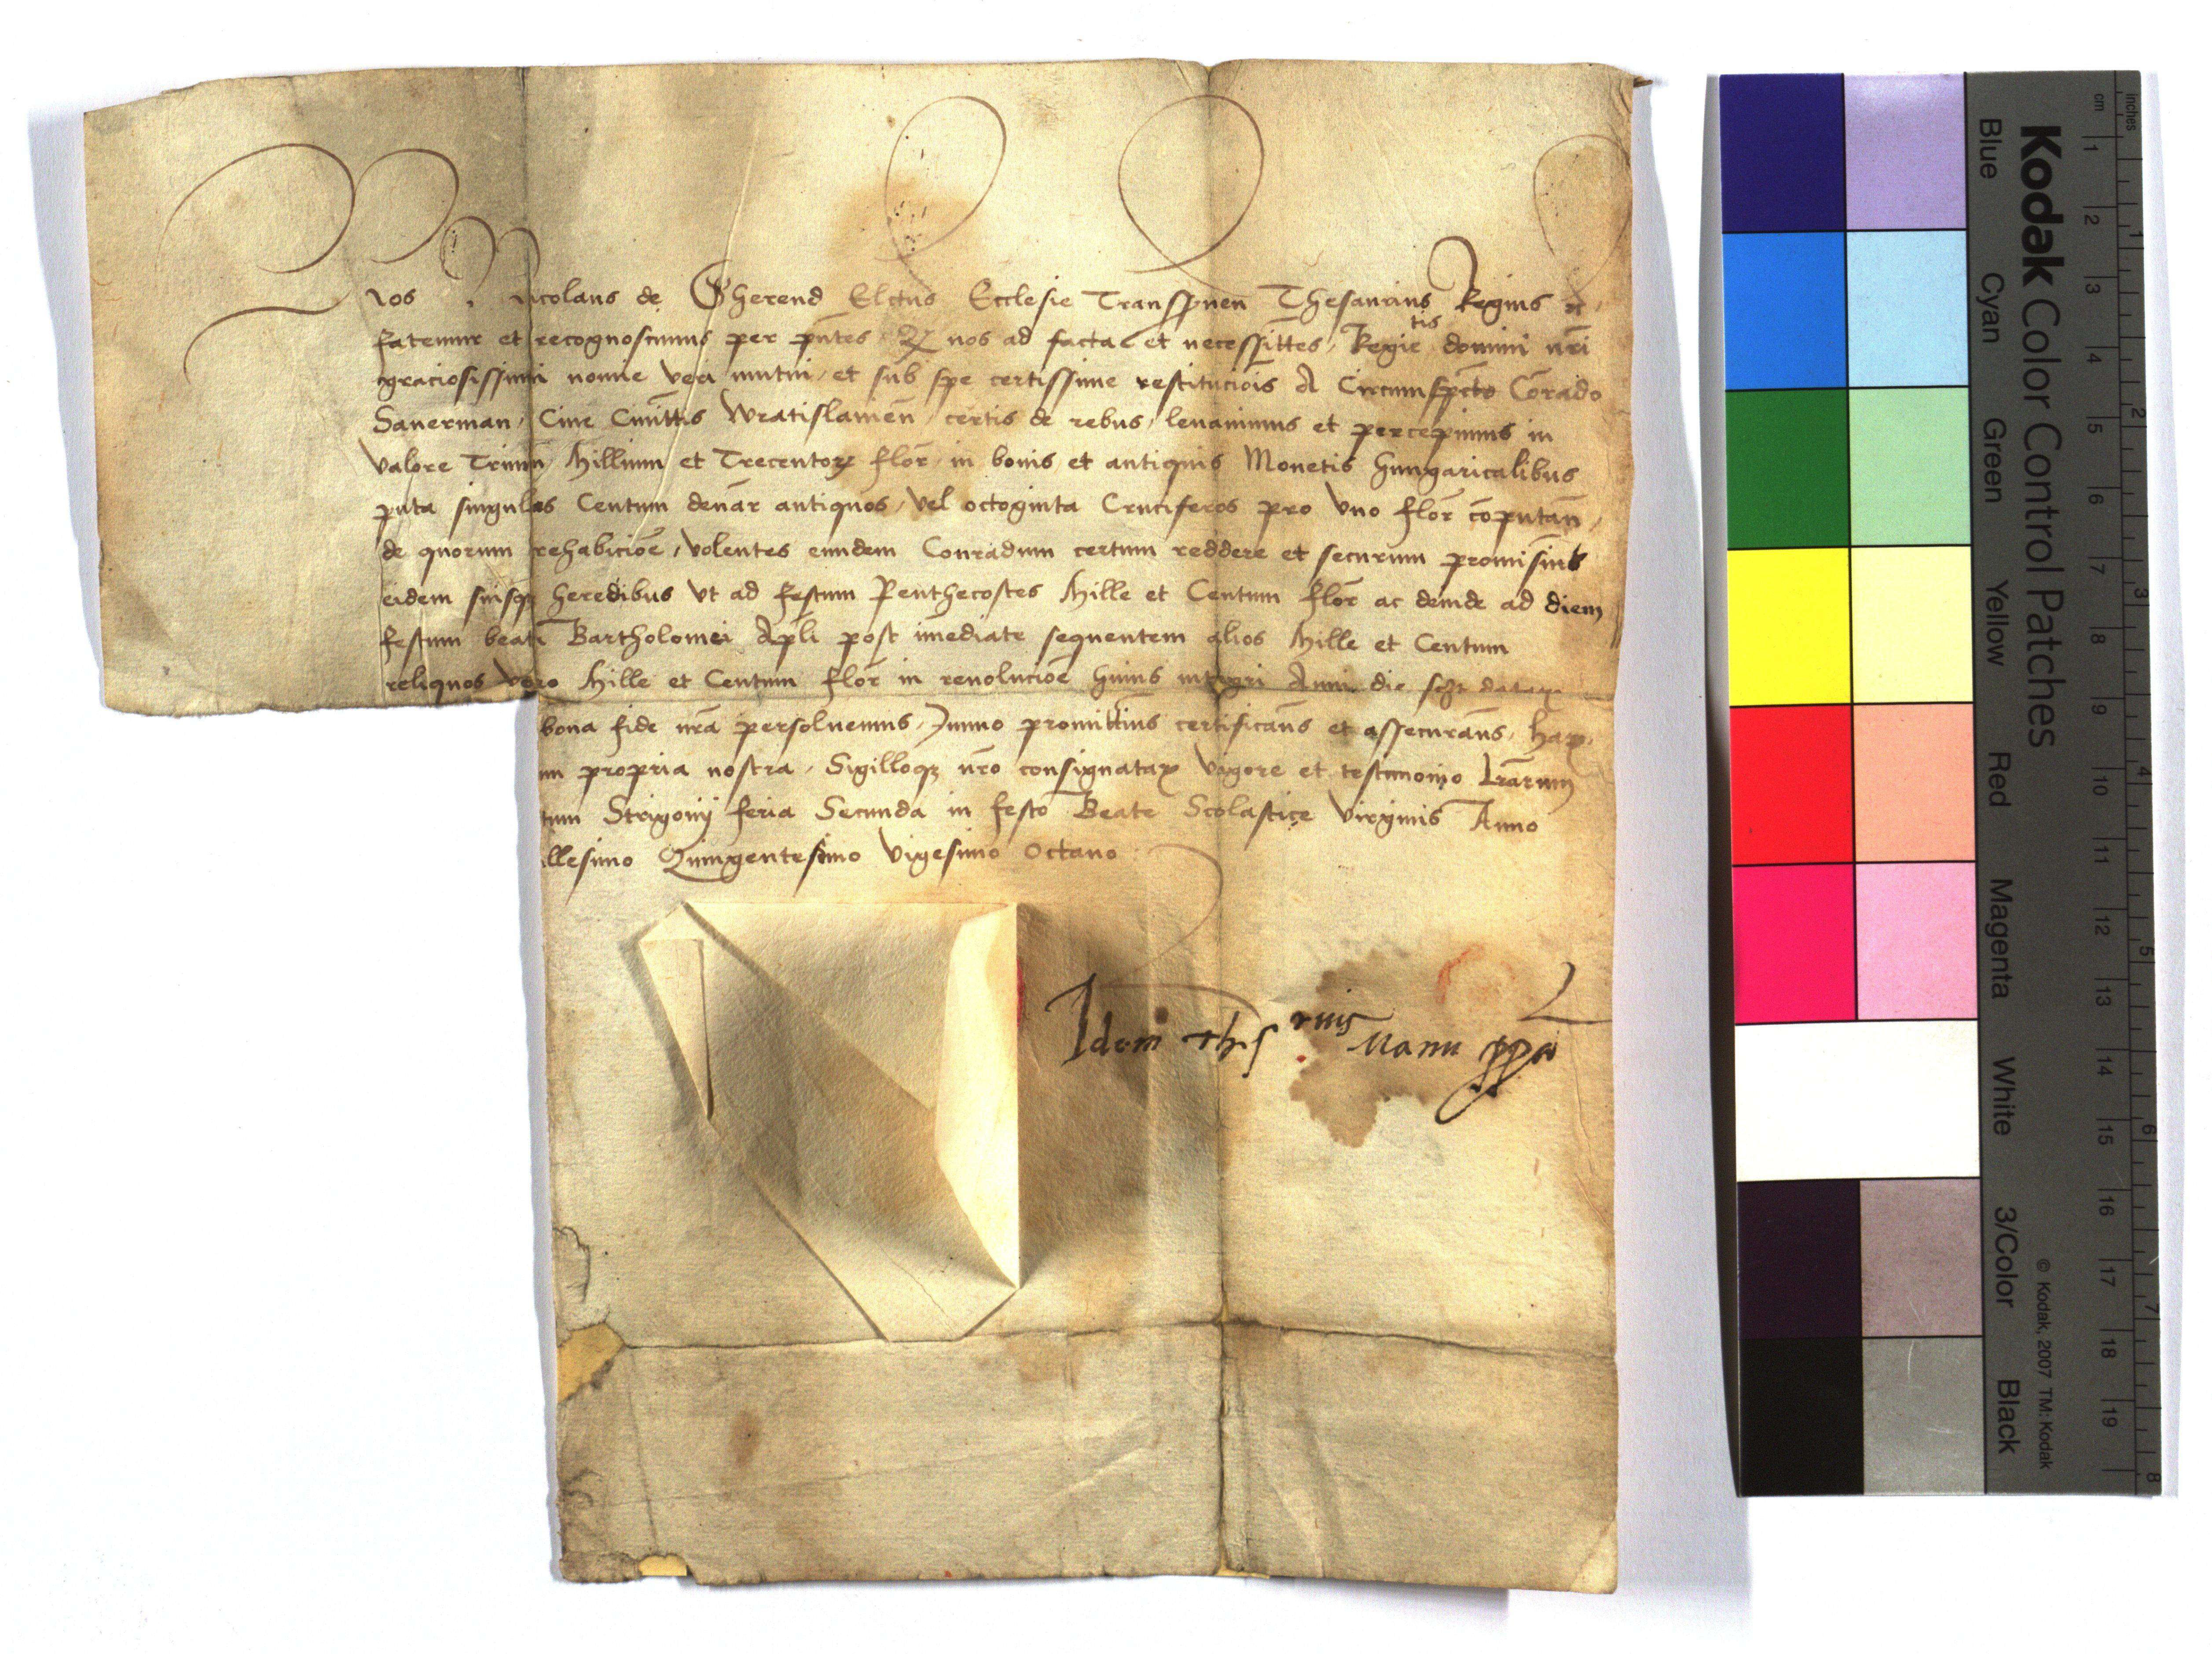 Nos Nicolaus de Gherend Elctus Ecclesie Transsuen Thesaurius Regius etc
fatemur et recognoscimus per pntes Qz nos ad facta et necessittes Regie tis domini nri
graciosissimi nomie vera mutui et sub spe certissime restituciois A Circumspcto Corado
Sauerman Ciue Ciuittis Wratislauien certis de rebus leuauimus et percepimus in
valore Trium Millium et Trecentor flor in bonis et antiquis Monetis hungaricalibus
puta singulos Centum denar antiquos vel octoginta Cruciferos pro vno flor coputan
de quorum rehabicioe volentes eundem Conradum certum reddere et securum promisim
eidem suisqz heredibus vt ad festum Penthecostes Mille et Centum flor ac deinde ad diem
festum beati Bartholomei Apli post imediate sequentem alios Mille et Centum
reliquos vero Mille et Centum flor in reuolucioe huius integri Anni die datar
bona fide nra persoluemus Immo promittius certificans et assecurans har
propria nostra Sigilloqz nro consignatar vigore et testimonio lrarum
tum Strigonij feria Secunda in festo Beate Scolastice virginis Anno
llesimo Quingentesimo vigesimo octauo
Idem thes rius Manu ppa
Kodak Color Control Patches
Blue Cyan Green Yellow Red Magenta White 3/Color Black
© Kodak, 2007 TM: Kodak
inches 1 2 3 4 5 6 7 8
cm 1 2 3 4 5 6 7 8 9 10 11 12 13 14 15 16 17 18 19